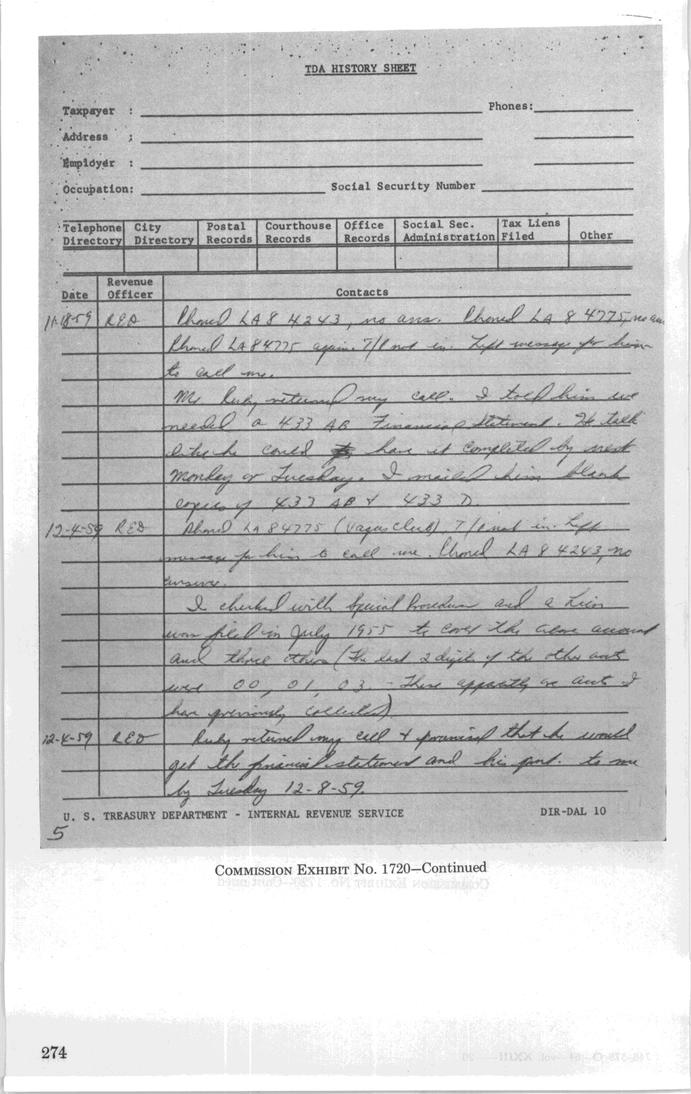 TDA HISTORY SHEET
Taxpayer : Phones:
Address :
Employer :
Occupation: Social Security Number
Telephone Directory City Directory Postal Records Courthouse Records Office Records Social Sec. Administration Tax Liens Filed Other
Date Revenue Officer Contacts
11-18-59 RED Phoned LA 8 4243, no ans. Phoned LA 8 4775, no an
Phoned LA 84775 again. T/P not in. Left message for him
to call me.
Mr Ruby returned my call. I told him we
needed a 433 AB Financial Statement. He
like he could have it completed by next
Monday or Tuesday. I mailed him blank
copies of 433 AB & 433 D.
12-4-59 RED Phoned LA 84775 (Vagas Club), T/P not in. Left
message for him to call me. Phoned LA 8 4243, no
I checked with Special Procedure and a Lien
was filed in July 1955 to cover the above account
and three others (The last 2 digits of the other
were 00, 01, 03. - These I
have previously collected)
12-4-59 RED Ruby returned my call & promised that he would
get the financial statement and his to me
by Tuesday 12-8-59.
U. S. TREASURY DEPARTMENT - INTERNAL REVENUE SERVICE DIR-DAL 10
5
COMMISSION EXHIBIT No. 1720—Continued
274